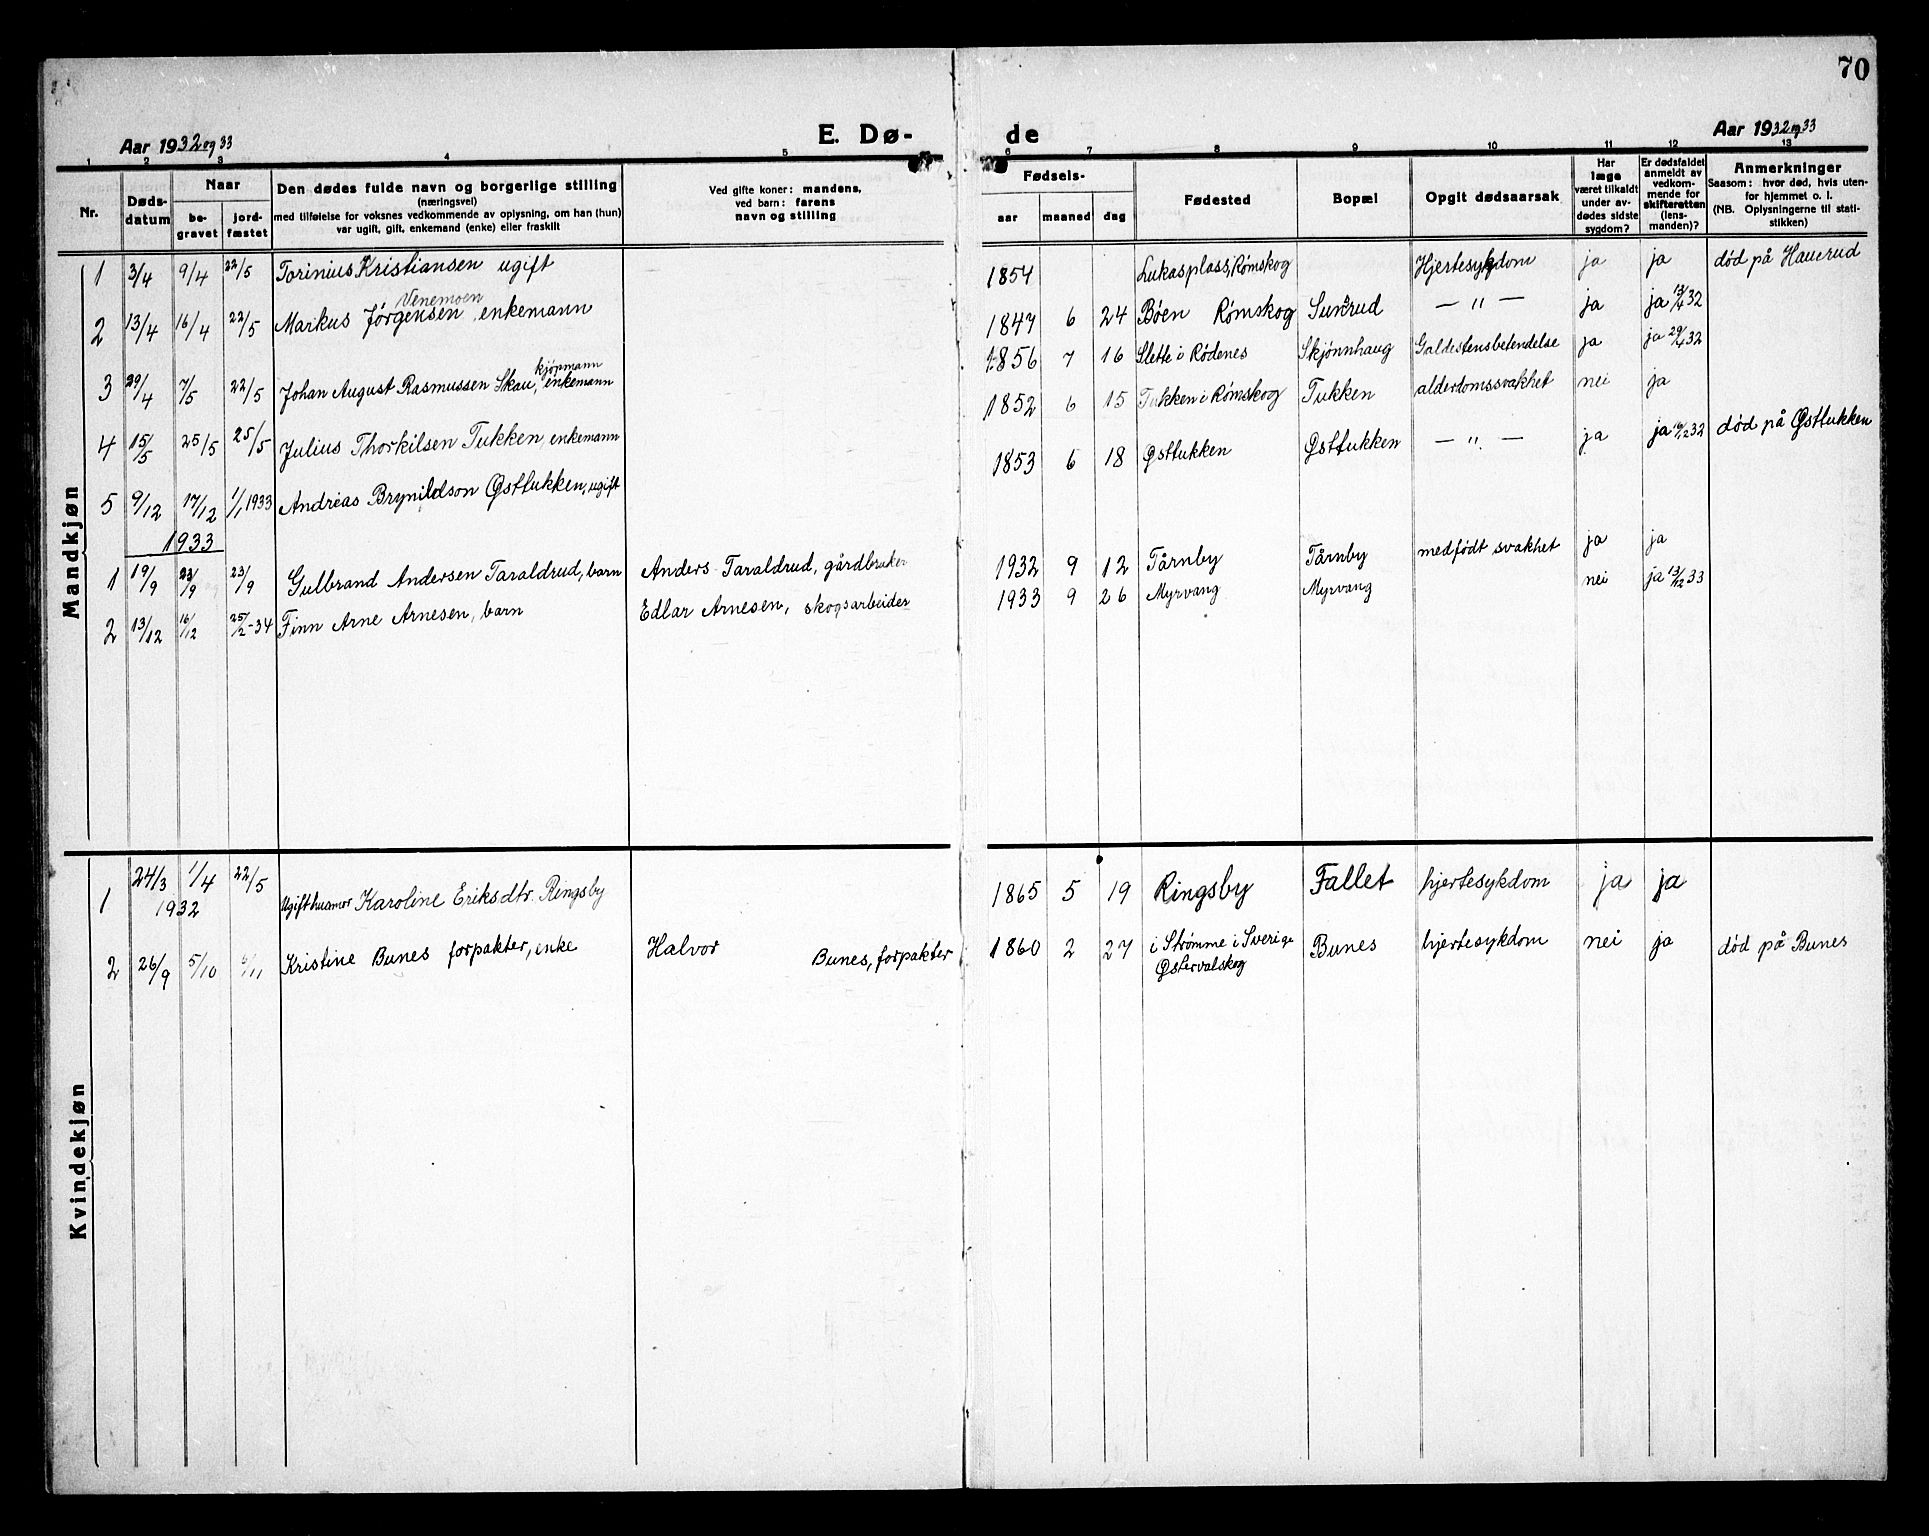 70
Aar 1932 og 33 E. Dø- de Aar 1932 og 33
1 2 3 4 5 6 7 8 9 10 11 12 13
Nr.
Døds-
datum
Naar
be-
gravet
jord-
fæstet
Den dødes fulde navn og borgerlige stilling
(næringsvei)
med tilføielse for voksnes vedkommende av oplysning, om han (hun)
var ugift, gift, enkemand (enke) eller fraskilt
Ved gifte koner: mandens,
ved barn: farens
navn og stilling
Fødsels-
aar maaned dag
Fødested
Bopæl
Opgit dødsaarsak
Har
læge
været tilkaldt
under av-
dødes sidste
sygdom?
Er dødsfaldet
anmeldt av
vedkom-
mende for
skifteretten
(lens-
manden)?
Anmerkninger
Saasom: hvor død, hvis uten-
for hjemmet o. l.
(NB. Oplysningerne til stati-
stikken)
Mandkjøn
1 3/4 9/4 22/5 Torinius Kristiansen ugift 1854 Lukasplass, Rømskog Hjertesykdom ja ja død på Hauerud
Venemoen
2 13/4 16/4 22/5 Markus Jørgensen, enkemann 1847 6 24 Bøen Rømskog Sundrud — " — ja ja 13/4 32
kjøpmann
3 29/4 7/5 22/5 Johan August Rasmussen Skau, enkemann 1856 7 16 Slette i Rødenes Skjønnhaug Galdestensbetendelse ja ja 29/4 32
4 15/5 25/5 25/5 Julius Thorkilsen Tukken, enkemann 1852 6 15 Tukken i Rømskog Tukken alderdomssvakhet nei ja
5 9/12 17/12 1/1 1933 Andreas Brynildson Østtukken, ugift 1853 6 18 Østtukken Østtukken — " — ja ja 12 32 død på Østtukken
1933
1 19/9 23/9 23/9 Gulbrand Andersen Taraldrud, barn Anders Taraldrud, gårdbruker 1932 9 12 Tårnby Tårnby medfødt svakhet ja ja
2 13/12 16/12 25/2-34 Finn Arne Arnesen, barn Edlar Arnesen, skogsarbeider 1933 9 26 Myrvang Myrvang nei ja 13/12 33
Kvindekjøn
1 24/3 1/4 22/5 Karoline Eriksdtr. Ringsby 1865 5 19 Ringsby Fallet hjertesykdom ja ja
1932
2 26/9 5/10 6/11 Kristine Bunes forpakter, enke Halvor Bunes, forpakter 1860 2 27 i Strømme i Sverige Bunes hjertesykdom nei ja død på Bunes
Østervalskog